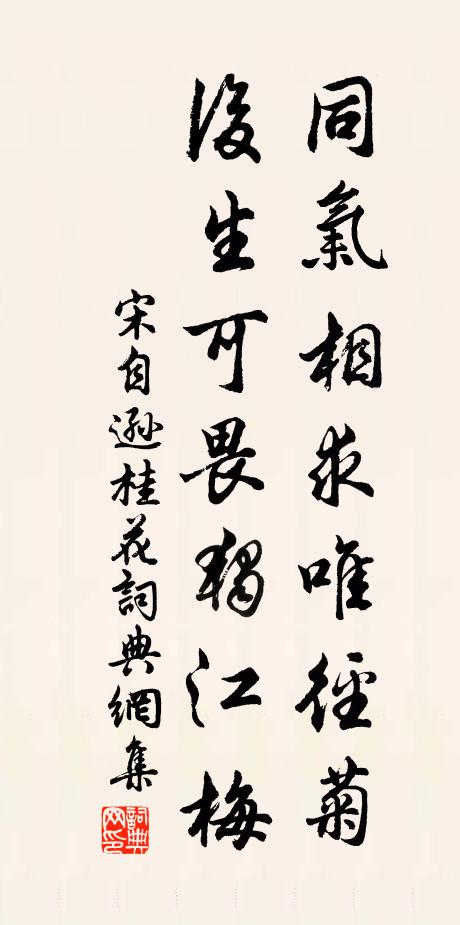 同氣相求唯徑菊
後生可畏獨江梅
宋自遜桂花詞典網集
詞典網印